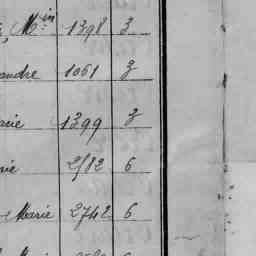 Min 1398 3
andre 1061 3
arie 1399 3
rie 2182 6
Marie 2742 6